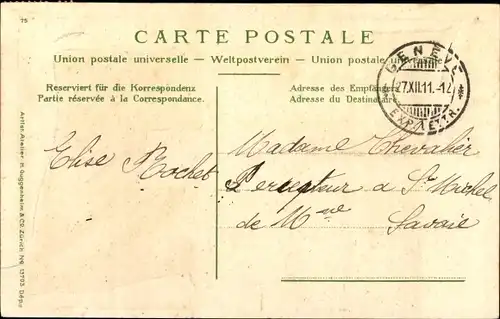 75
CARTE POSTALE
Union postale universelle – Weltpostverein – Union postale universelle
Reserviert für die Korrespondenz
Partie réservée à la Correspondance.
Adresse des Empfängers
Adresse du Destinataire
GENÈV
27.XII.11.-12
EXP. LETTR.
Elise Rochet
Madame Chevalier
Percepteur a St Michel
de Mne Savoie
Artist. Atelier H. Guggenheim & Co. Zürich No. 13793 Dépo